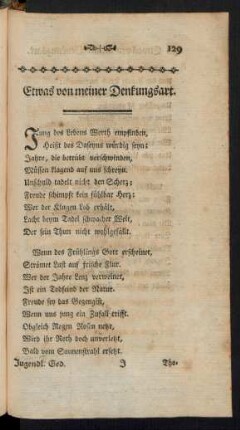 129
Etwas von meiner Denkungsart.
Jung des Lebens Werth empfinden,
Heißt des Daseyns würdig seyn:
Jahre, die betrübt verschwinden,
Müssen klagend auf uns schreyn.
Unschuld tadelt nicht den Scherz;
Freude schimpft kein fühlbar Herz:
Wer der Klugen Lob erhält,
Lacht beym Tadel schwacher Welt,
Der sein Thun nicht wohlgefällt.
Wenn des Frühlings Gott erscheinet,
Strömet Lust auf frische Flur.
Wer der Jahre Lenz verweinet,
Ist ein Todfeind der Natur.
Freude sey das Gegengift,
Wenn uns jung ein Zufall trifft.
Obgleich Regen Rosen netzt,
Wird ihr Roth doch unverletzt,
Bald vom Sonnenstrahl ersetzt.
Jugendl. Ged. J Thä-